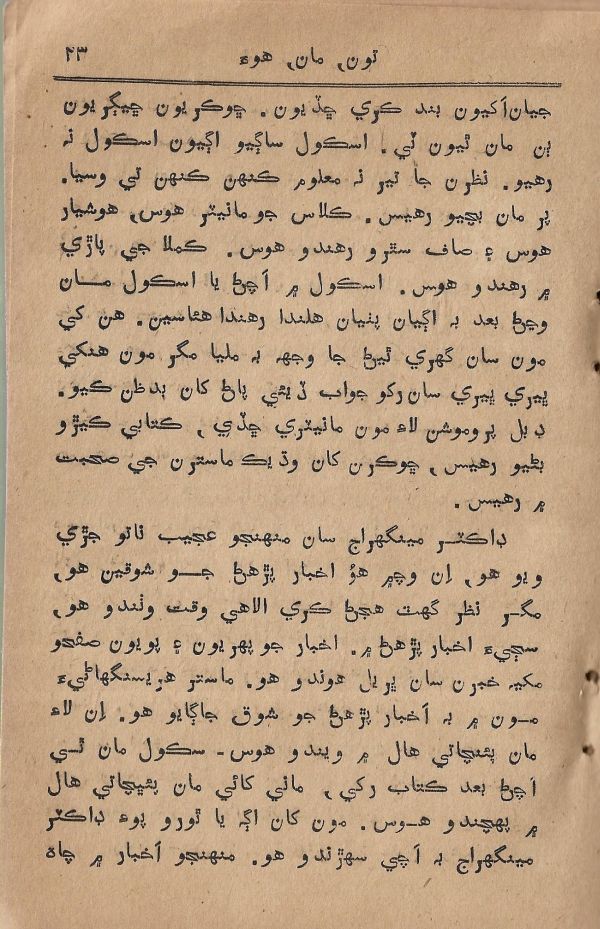 تون، مان، هوءَ ۲۳
جيان اکيون بند ڪري ڇڏيون. ڇوڪريون ڇيڳريون
ٻن مان ٿيون ٽي. اسڪول ساڳيو اڳيون اسڪول نہ
رهيو. نظرن جا تير نہ معلوم ڪنهن ڪنهن تي وسيا.
پر مان بچيو رهيس. ڪلاس جو مانيٽر هوس، هوشيار
هوس ۽ صاف سٿرو رهندو هوس. ڪملا جي پاڙي
۾ رهندو هوس. اسڪول ۾ اچڻ يا اسڪول مان
وڃڻ بعد بہ اڳيان پٺيان هلندا رهندا هئاسين. هن کي
مون سان گهري ٿيڻ جا وجهہ بہ مليا مگر مون هنکي
ڀيري ڀيري سان رکو جواب ڏيئي پاڻ کان بدظن ڪيو.
ڊبل پروموشن لاءِ مون مانيٽري ڇڏي، ڪتابي ڪيڙو
بڻيو رهيس، ڇوڪرن کان وڌيڪ ماسترن جي صحبت
۾ رهيس.
ڊاڪٽر مينگهراج سان منهنجو عجيب ناتو جڙي
ويو هو، اِن وچ۾ هؤ اخبار پڙهڻ جو شوقين هو،
مگر نظر گهٽ هجڻ ڪري الاهي وقت وٺندو هو،
سڄيءَ اخبار پڙهڻ ۾. اخبار جو پهريون ۽ پويون صفحو
مکيہ خبرن سان ڀريل هوندو هو. ماستر هريسنگهاڻيءَ
مون ۾ بہ اخبار پڙهڻ جو شوق جاڳايو هو. اِن لاءِ
مان پئنچاتي هال ۾ ويندو هوس۔ سڪول مان ٿي
اچڻ بعد ڪتاب رکي، ماني کائي مان پئنچاتي هال
۾ پهچندو هوس. مون کان اڳہ يا ٿورو پوءِ ڊاڪٽر
مينگهراج بہ اچي سهڙندو هو. منهنجو اخبار ۾ چاه